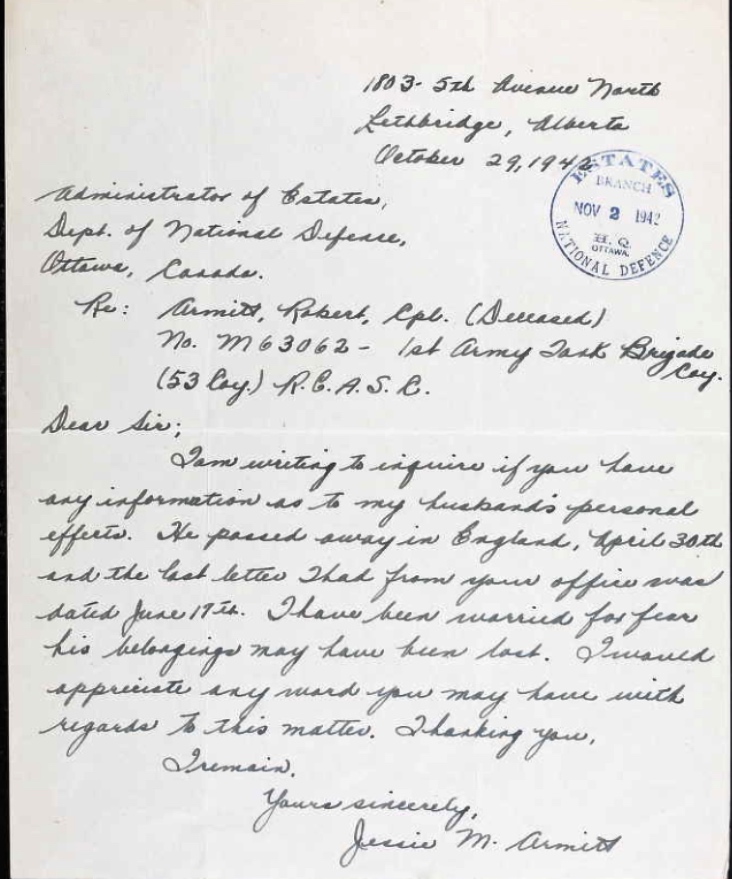 1803- 5th Avenue North
Lethbridge, Alberta
October 29, 1942
ESTATES
BRANCH
NOV 2 1942
H. Q.
OTTAWA.
NATIONAL DEFENCE
Administrator of Estates,
Dept. of National Defense,
Ottawa, Canada.
Re: Armitt, Robert, Cpl. (Deceased)
No. M63062 - 1st Army Tank Brigade
Coy.
(53 Coy.) R.C.A.S.C.
Dear Sir;
I am writing to inquire if you have
any information as to my husband's personal
effects. He passed away in England, April 30th
and the last letter I had from your office was
dated June 17th. I have been worried for fear
his belongings may have been lost. I would
appreciate any word you may have with
regards to this matter. Thanking you,
I remain.
Yours sincerely,
Jessie M. Armitt